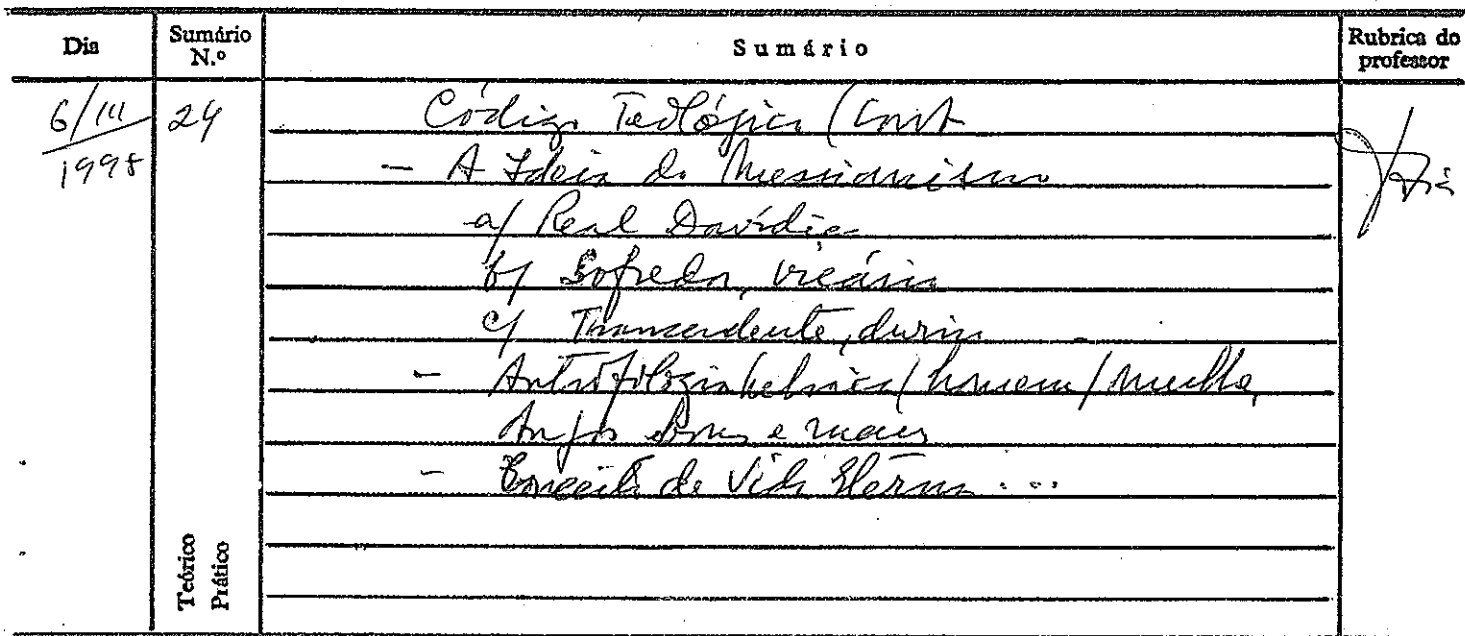 Dia Sumário N.º Sumário Rubrica do professor
6/III 24 Código Teológico (Cont
1998 - A Ideia do Messianismo
a/ Real Davídico
b/ Sofredor, vicário
c/ Transcendente, divino
- Antropologia hebraica/homem/mulher,
Anjos bons e maus
- Conceito de Vida Eterna ...
Teórico
Prático